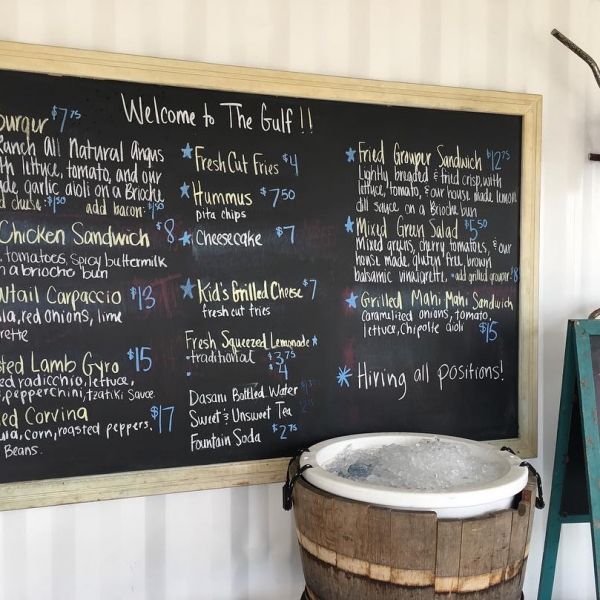 Welcome to The Gulf!!
burger $7.75
Ranch All Natural Angus
lettuce, tomato, and our
garlic aioli on a Brioche
cheese $1.50 add bacon $1.50
Chicken Sandwich $8
tomatoes, spicy buttermilk
on a briochè bun
Carpaccio $13
red onions, lime
Lamb Gyro $15
radicchio, lettuce,
pepperchini, tzatiki sauce
Corvina $17
corn, roasted peppers.
Beans.
Fresh Cut Fries $4
Hummus $7.50
pita chips
Cheesecake $7
Kid's Grilled Cheese $7
fresh cut fries
Fresh Squeezed Lemonade
traditional $3.75
$4
Dasani Bottled Water
Sweet & Unsweet Tea
Fountain Soda $2.75
Fried Grouper Sandwich $12.75
Lightly breaded & fried crisp, with
lettuce, tomato, & our house made lemon
dill sauce on a Brioche bun
Mixed Green Salad $5.50
Mixed greens, cherry tomatoes, & our
house made, gluten free, brown
balsamic vinaigrette. add grilled grouper $8
Grilled Mahi Mahi Sandwich
caramelized onions, tomato,
lettuce, Chipotle aioli $15
Hiring all positions!